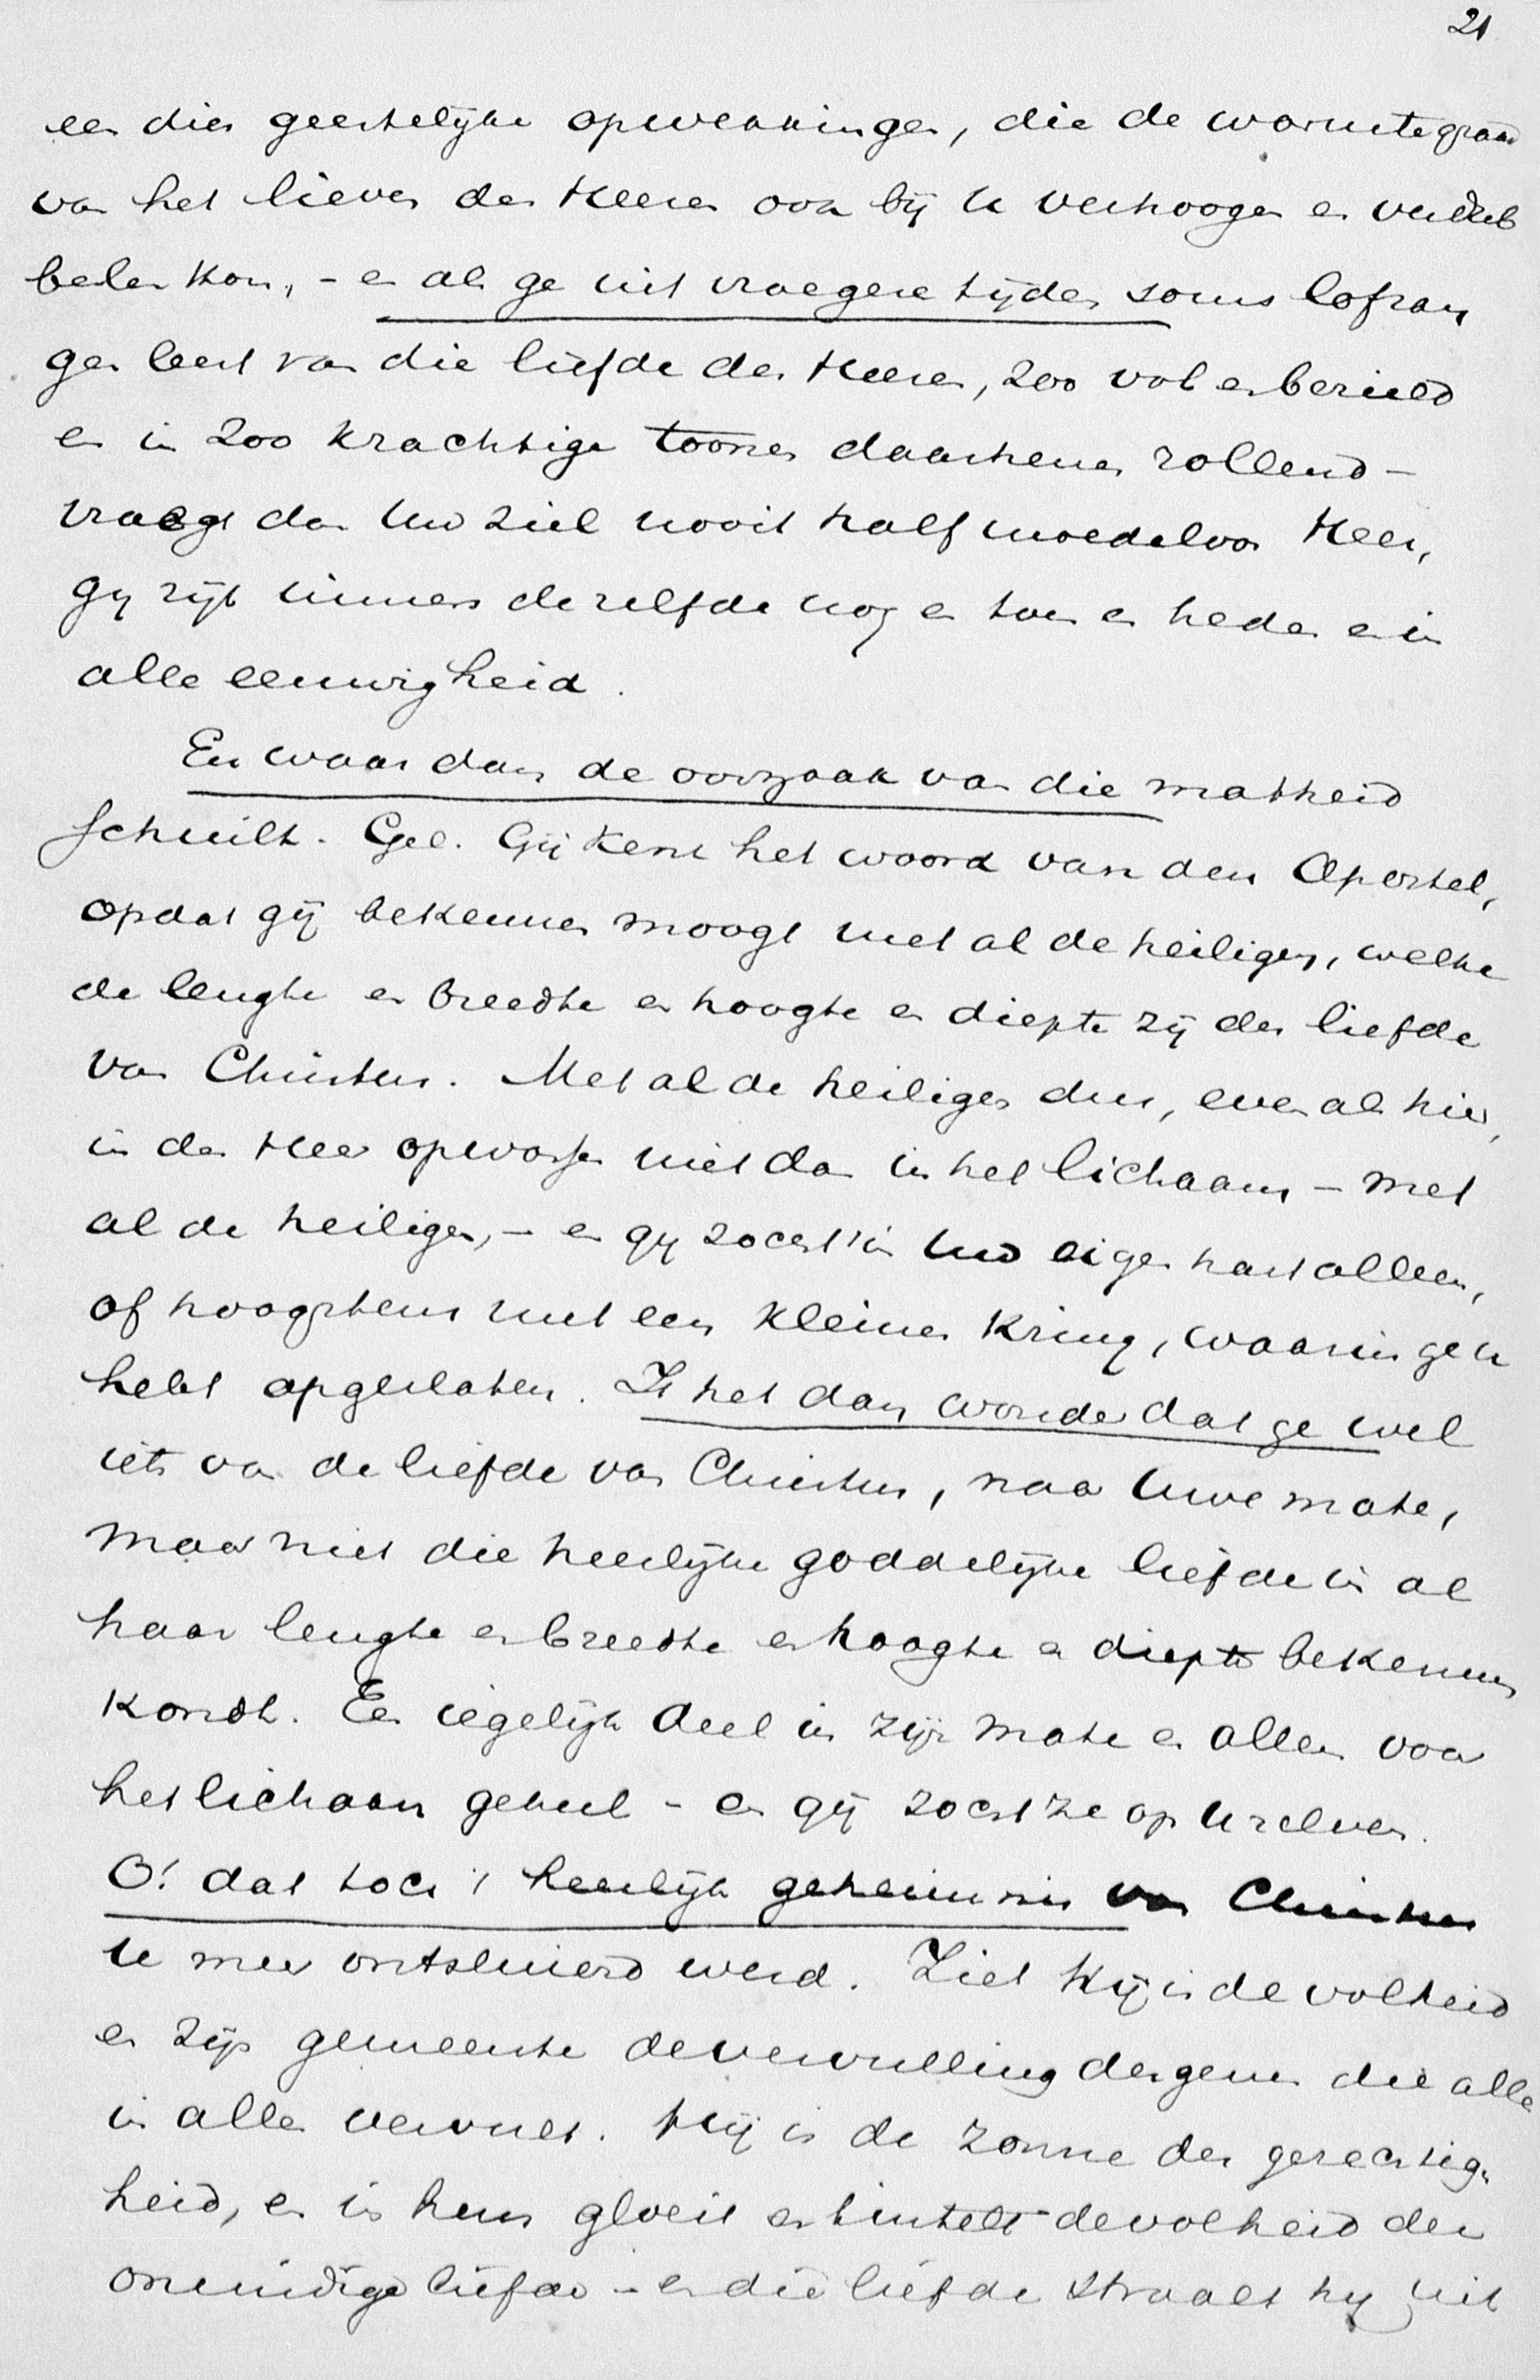 21
een dier geestelijke opwekkingen, die de warmtegraad
van het lieven des Heeren ook bij U verhoogen en verdub
belen kon, - en als ge uit vroegere tijden soms lofzan
gen leest van die liefde des Heeren, zoo vol en bezield
en in zoo krachtige toonen daarhenen rollend -
vraagt dan Uw ziel nooit half moedeloos Heer,
gy zijt immers dezelfde nog en toen en heden en in
alle eeuwigheid.
En waar dan de oorzaak van die matheid
schuilt. Gel. Gij kent het woord van den Apostel,
opdat gij bekennen moogt met al de heiligen, welke
de lengte en breedte en hoogte en diepte zij der liefde
van Christus. Met al de heiligen dus, even als hier,
in den Heer opwassen niet dan in het lichaam - met
al de heiligen, - en gy zocht 't in Uw eigen hart alleen,
of hoogstens met een kleinen kring, waarin ge U
hebt opgesloten. Is het dan wonder dat ge wel
iets van de liefde van Christus, naar Uwe mate,
maar niet die heerlijke goddelijke liefde in al
haar lengte en breedte en hoogte en diepte bekennen
kondt. Een iegelijk deel in zijn mate en allen voor
het lichaam geheel - en gij zocht ze op U zelven.
O! dat toch 't heerlijk geheimnis van Christus
U meer ontsluierd werd. Ziet Hij is de volheid
en zijn gemeente de vervulling desgenen die alles
in allen vervult. Hij is de zonne der gerechtig-
heid, en in hem gloeit en tintelt de volheid der
oneindige liefde - en die liefde straalt hy uit